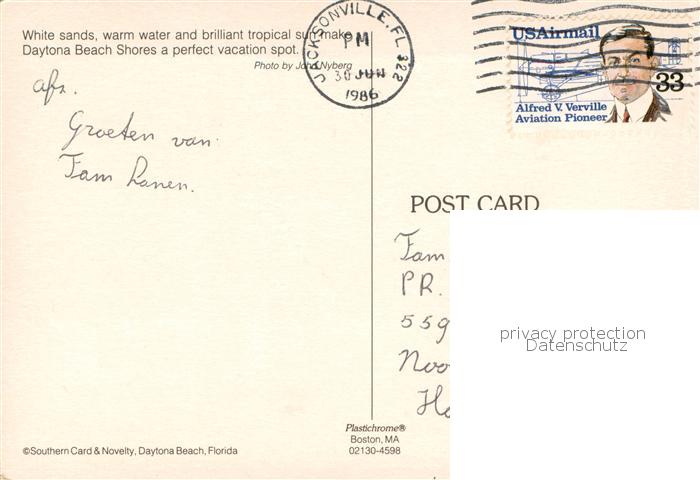 White sands, warm water and brilliant tropical sun make
Daytona Beach Shores a perfect vacation spot.
Photo by John Nyberg
JACKSONVILLE, FL 322
PM
30 JUN
1986
USAirmail
33
Alfred V. Verville
Aviation Pioneer
afz.
Groeten van
Fam Lanen.
POST CARD
Fam
PR.
559
Noo
Ho
privacy protection
Datenschutz
Plastichrome®
Boston, MA
02130-4598
©Southern Card & Novelty, Daytona Beach, Florida